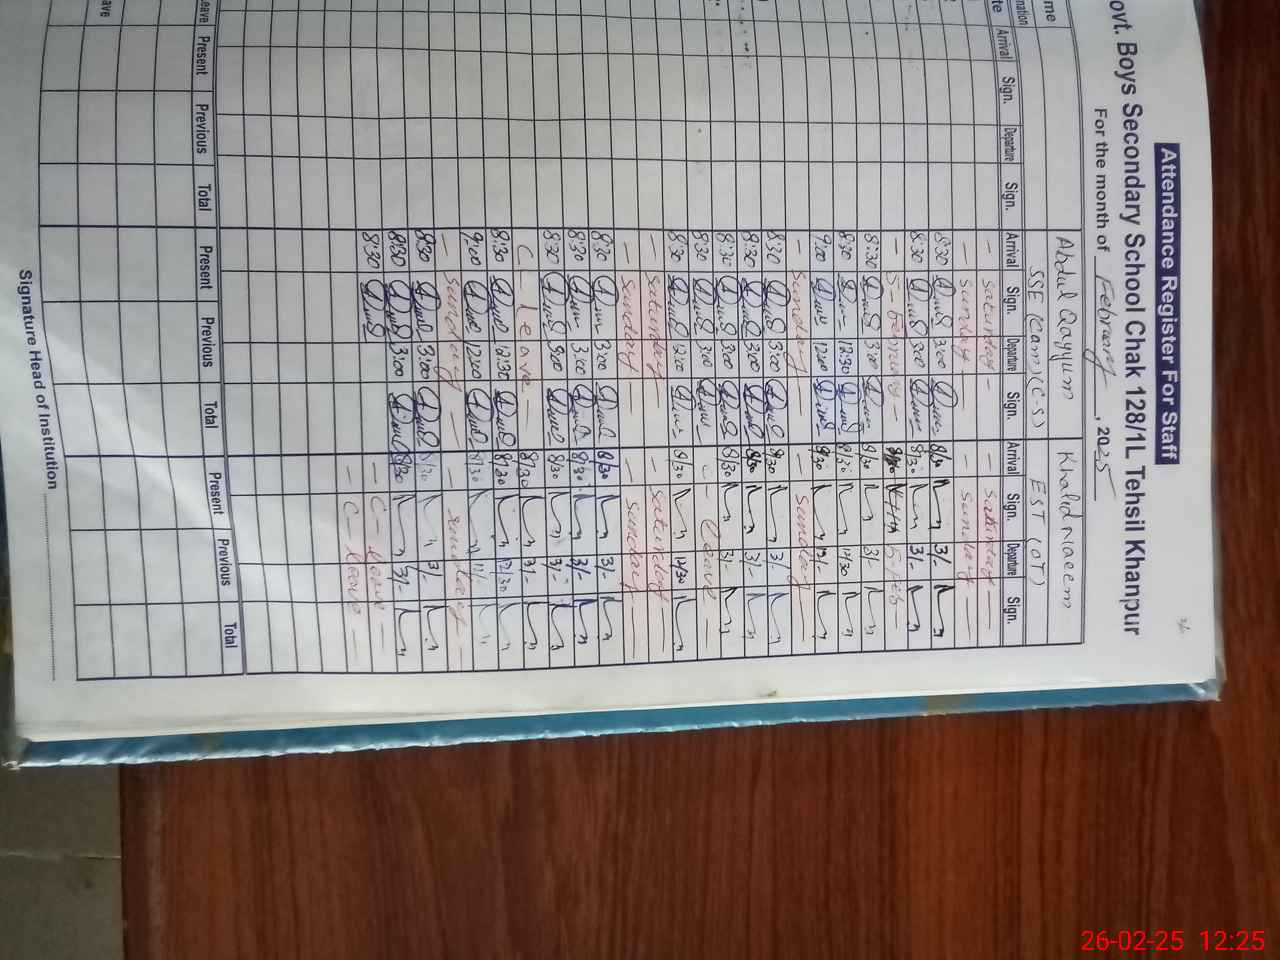 Attendance Register For Staff
ovt. Boys Secondary School Chak 128/1L Tehsil Khanpur
For the month of February, 2025
me Abdul Qayyum Khalid Naeem
nation SSE (Com) (C-S) EST (OT)
te Arrival Sign. Departure Sign. Arrival Sign. Departure Sign. Arrival Sign. Departure Sign.
- Saturday - - Saturday -
- Sunday - - Sunday -
8:30 3:00 8/30 3/-
8:30 3:00 8/30 3/-
- 5-February - 8/30 5-Feb-
8:30 3:00 8/30 3/-
8:30 12:30 8/30 12/30
9:00 12:00 8/30 12/-
- Sunday - - Sunday -
8:30 3:00 8/30 3/-
8:30 3:00 8/30 3/-
8:30 3:00 8/30 3/-
8:30 3:00 C- leave -
8:30 12:00 8/30 12/30
- Saturday - - Saturday -
- Sunday - - Sunday -
8:30 3:00 8/30 3/-
8:30 3:00 8/30 3/-
8:30 3:00 8/30 3/-
C- Leave - 8/30 3/-
8:30 12:30 8/30 12/30
9:00 12:00 8/30 12/-
- Sunday - - Sunday -
8:30 3:00 8/30 3/-
8:30 3:00 8/30 3/-
8:30 - C- leave -
- C- leave -
eave Present Previous Total Present Previous Total Present Previous Total
ave
Signature Head of Institution
26-02-25 12:25